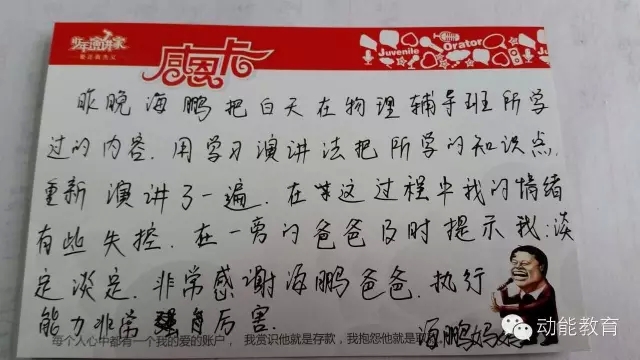 少年演讲家
感恩卡
Juvenile Orator
昨晚海鹏把白天在物理辅导班所学
过的内容.用学习演讲法把所学的知识点.
重新演讲了一遍.在这过程中我的情绪
有些失控.在一旁的爸爸及时提示我:淡
定淡定.非常感谢海鹏爸爸.执行
能力非常厉害.
每个人心中都有一个我的爱的账户，我赏识他就是存款，我抱怨他就是
海鹏妈妈
动能教育